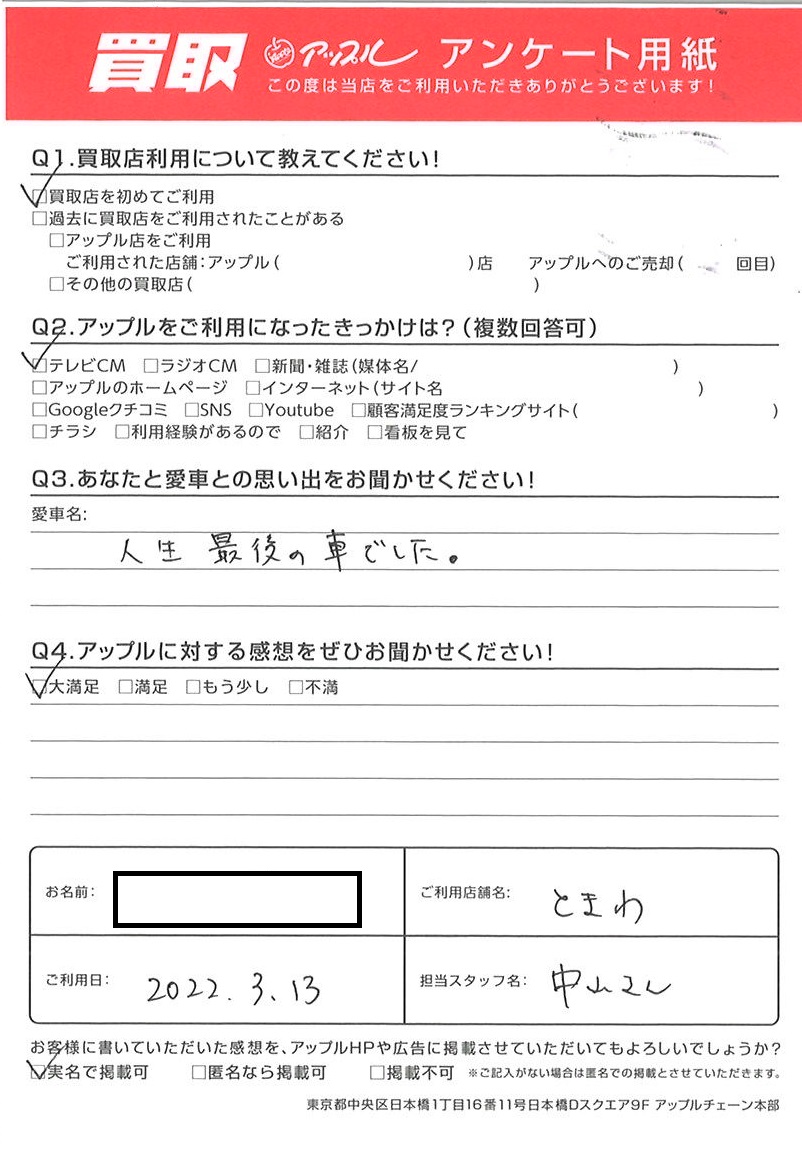 買取 アップル アンケート用紙
この度は当店をご利用いただきありがとうございます!
Q1.買取店利用について教えてください!
□買取店を初めてご利用
□過去に買取店をご利用されたことがある
□アップル店をご利用
ご利用された店舗:アップル( )店 アップルへのご売却( 回目)
□その他の買取店( )
Q2.アップルをご利用になったきっかけは?(複数回答可)
□テレビCM □ラジオCM □新聞・雑誌(媒体名/ )
□アップルのホームページ □インターネット(サイト名 )
□Googleクチコミ □SNS □Youtube □顧客満足度ランキングサイト( )
□チラシ □利用経験があるので □紹介 □看板を見て
Q3.あなたと愛車との思い出をお聞かせください!
愛車名:
人生最後の車でした。
Q4.アップルに対する感想をぜひお聞かせください!
□大満足 □満足 □もう少し □不満
お名前:
ご利用店舗名: とまわ
ご利用日: 2022.3.13
担当スタッフ名: 中山さん
お客様に書いていただいた感想を、アップルHPや広告に掲載させていただいてもよろしいでしょうか?
□実名で掲載可 □匿名なら掲載可 □掲載不可 ※ご記入がない場合は匿名での掲載とさせていただきます。
東京都中央区日本橋1丁目16番11号日本橋Dスクエア9F アップルチェーン本部